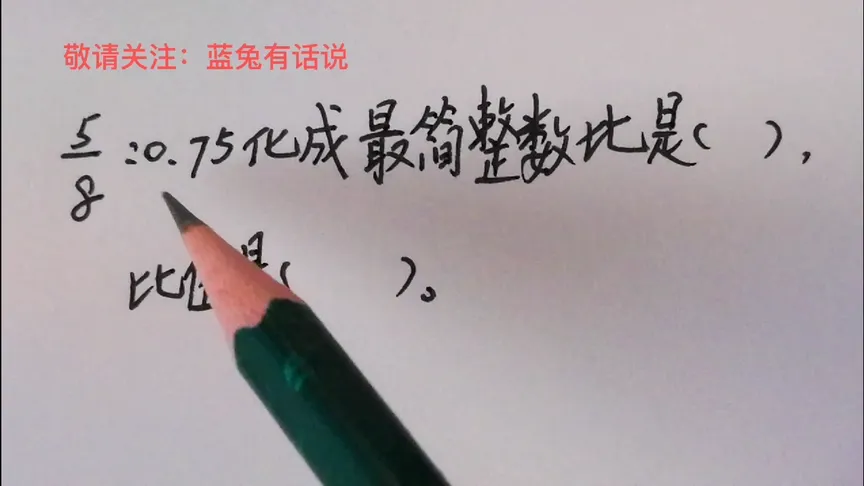 敬请关注：蓝兔有话说
5/8:0.75化成最简整数比是( ),
比值是( )。